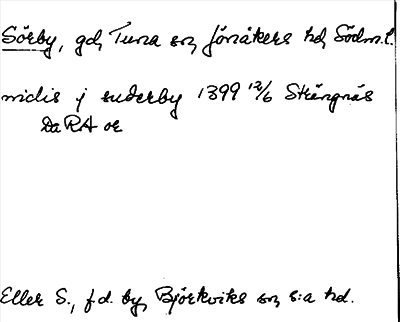 Sörby, gd, Tuna sn, Jönåkers hd, Södm.l.
nidis j suderby 1399 12/6 Strängnäs
DaRA or
Eller S., f.d. by, Björkviks sn, s:a hd.